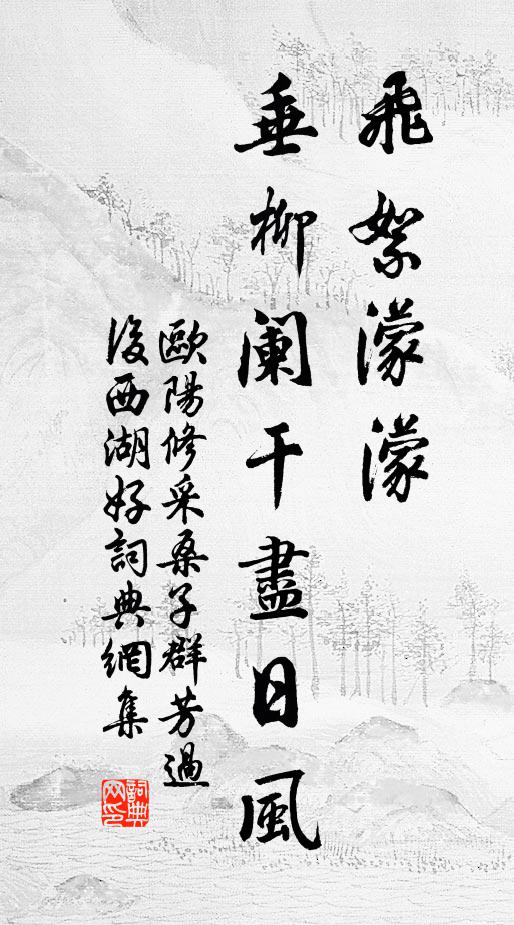 飛絮濛濛
垂柳阑干盡日風
歐陽修采桑子群芳過
後西湖好詞典網集
詞典
网印